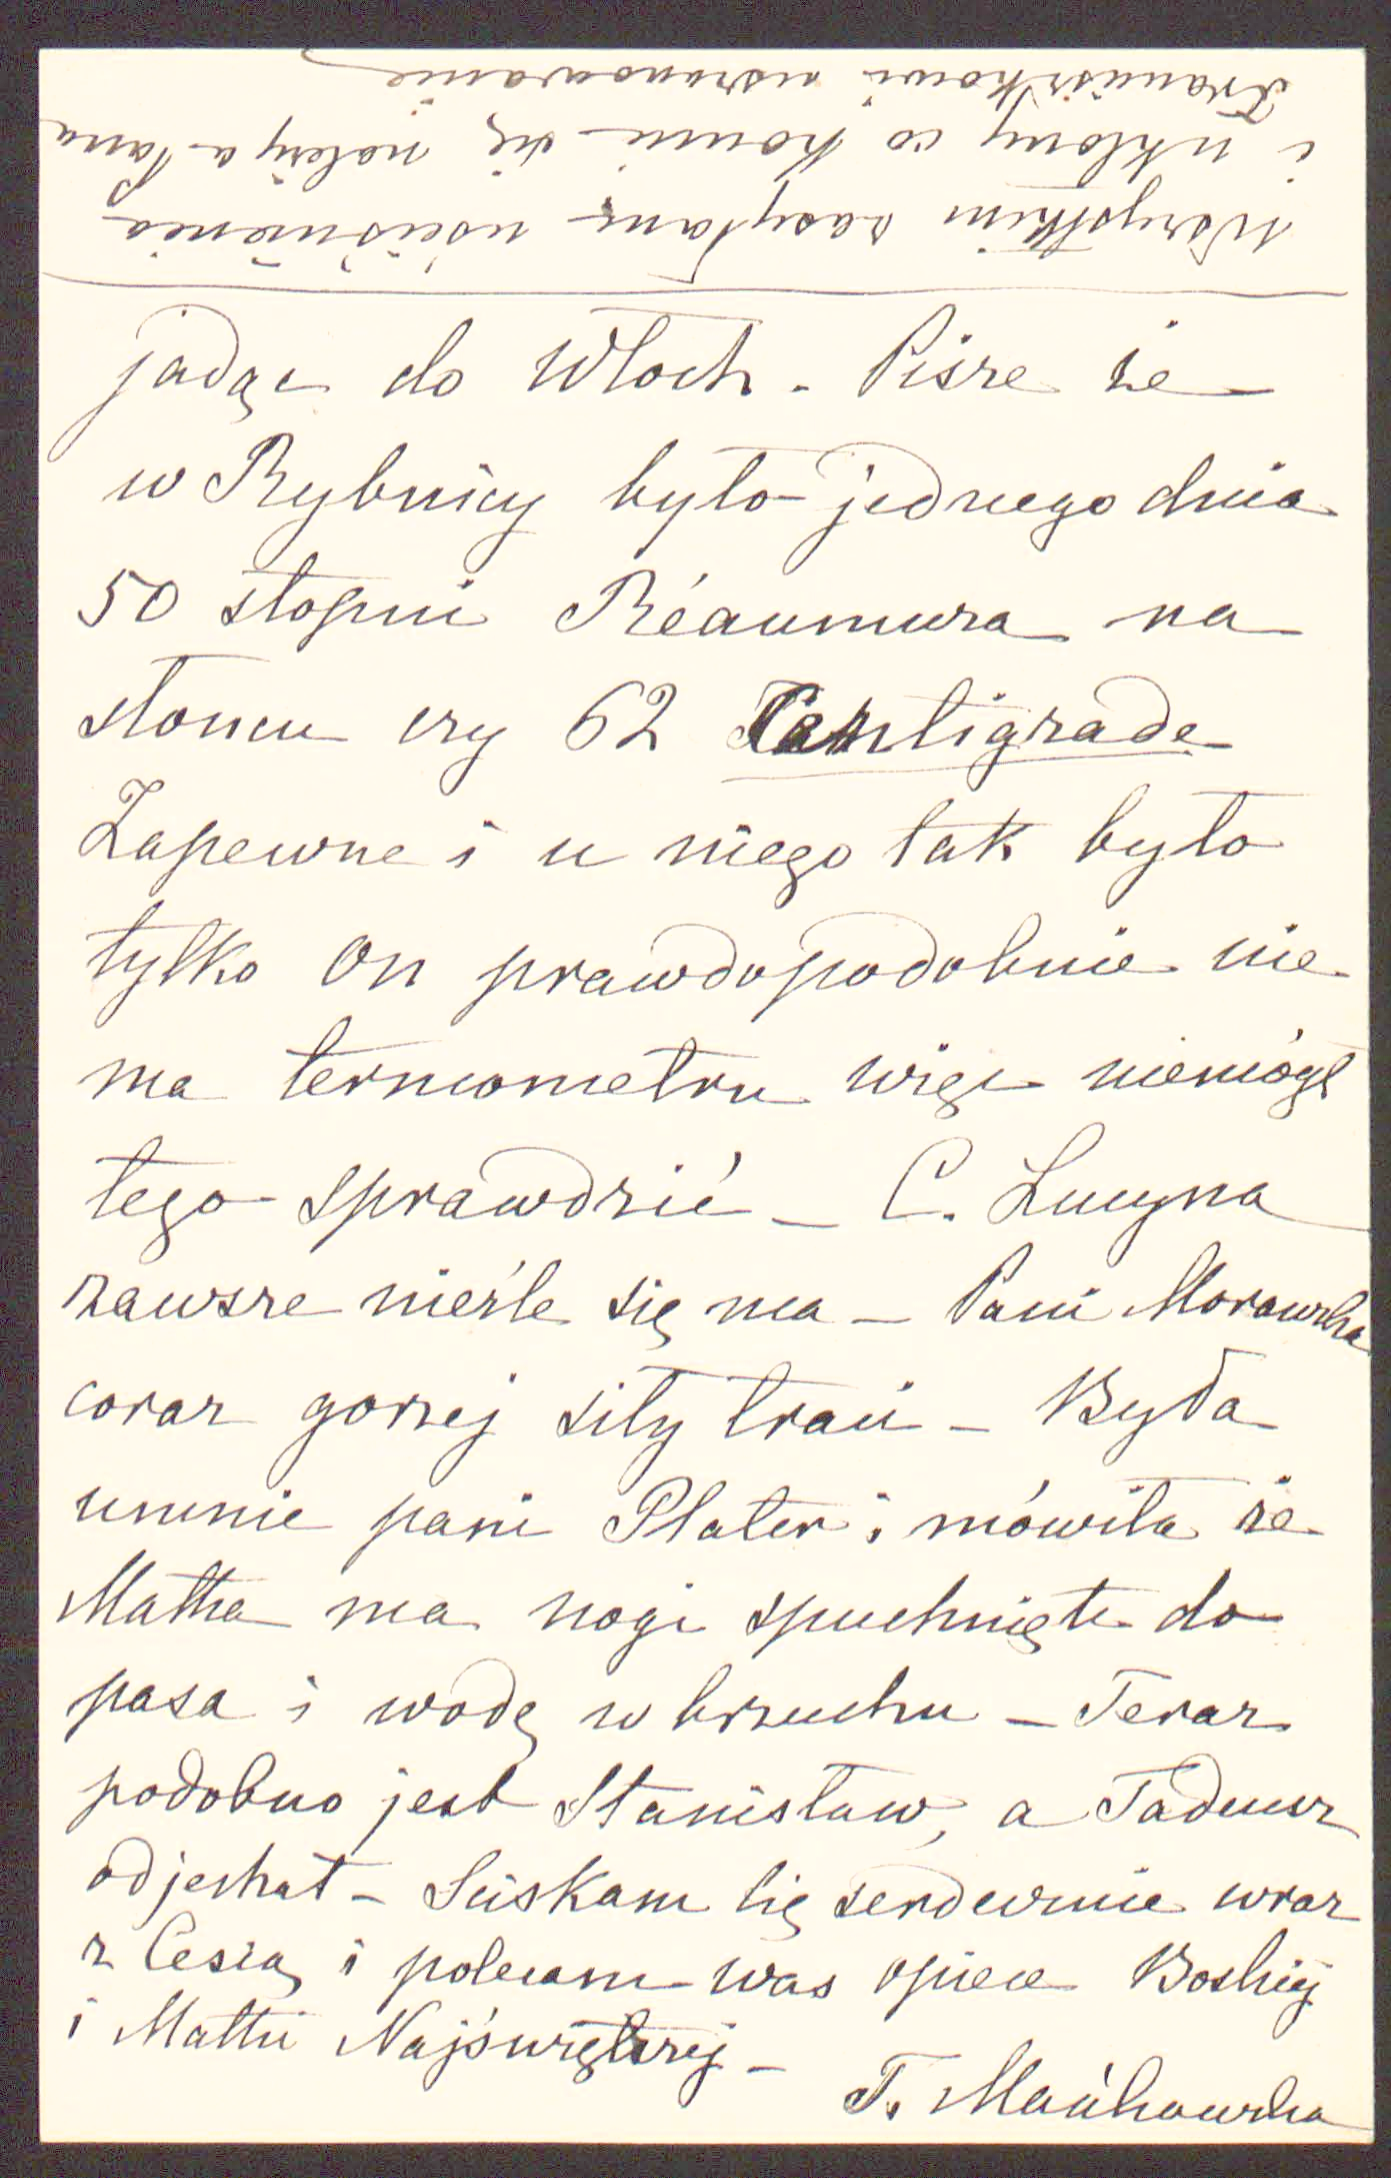 jadąc do Włoch. Pisze że
w Rybnicy było jednego dnia
50 stopni Réaumura na
słońcu czy 62 Centigrade
Zapewne i u niego tak było
tylko on prawdopodobnie nie
ma termometru więc niemógł
tego sprawdzić – C. Lucyna
zawsze nieźle się ma – Pani Morawska
coraz gorzej siły traci – Była
umnie pani Plater i mówiła że
Matka ma nogi spuchnięte do
pasa i wodę w brzuchu – Teraz
podobno jest Stanisław, a Tadeusz
odjechał – Sciskam cię serdecznie wraz
z Cesią i polecam was opiece Boskiej
i Matki Najświętszej –
T. Mańkowska
Wszystkim zasyłam uściśnienia
i ukłony co komu się należy a Pana
Franciszkowi uszanowanie